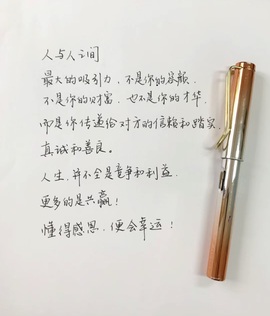 人与人之间
最大的吸引力,不是你的容颜.
不是你的财富,也不是你的才华.
而是你传递给对方的信赖和踏实.
真诚和善良。
人生,并不全是竞争和利益.
更多的是共赢!
懂得感恩,便会幸运!